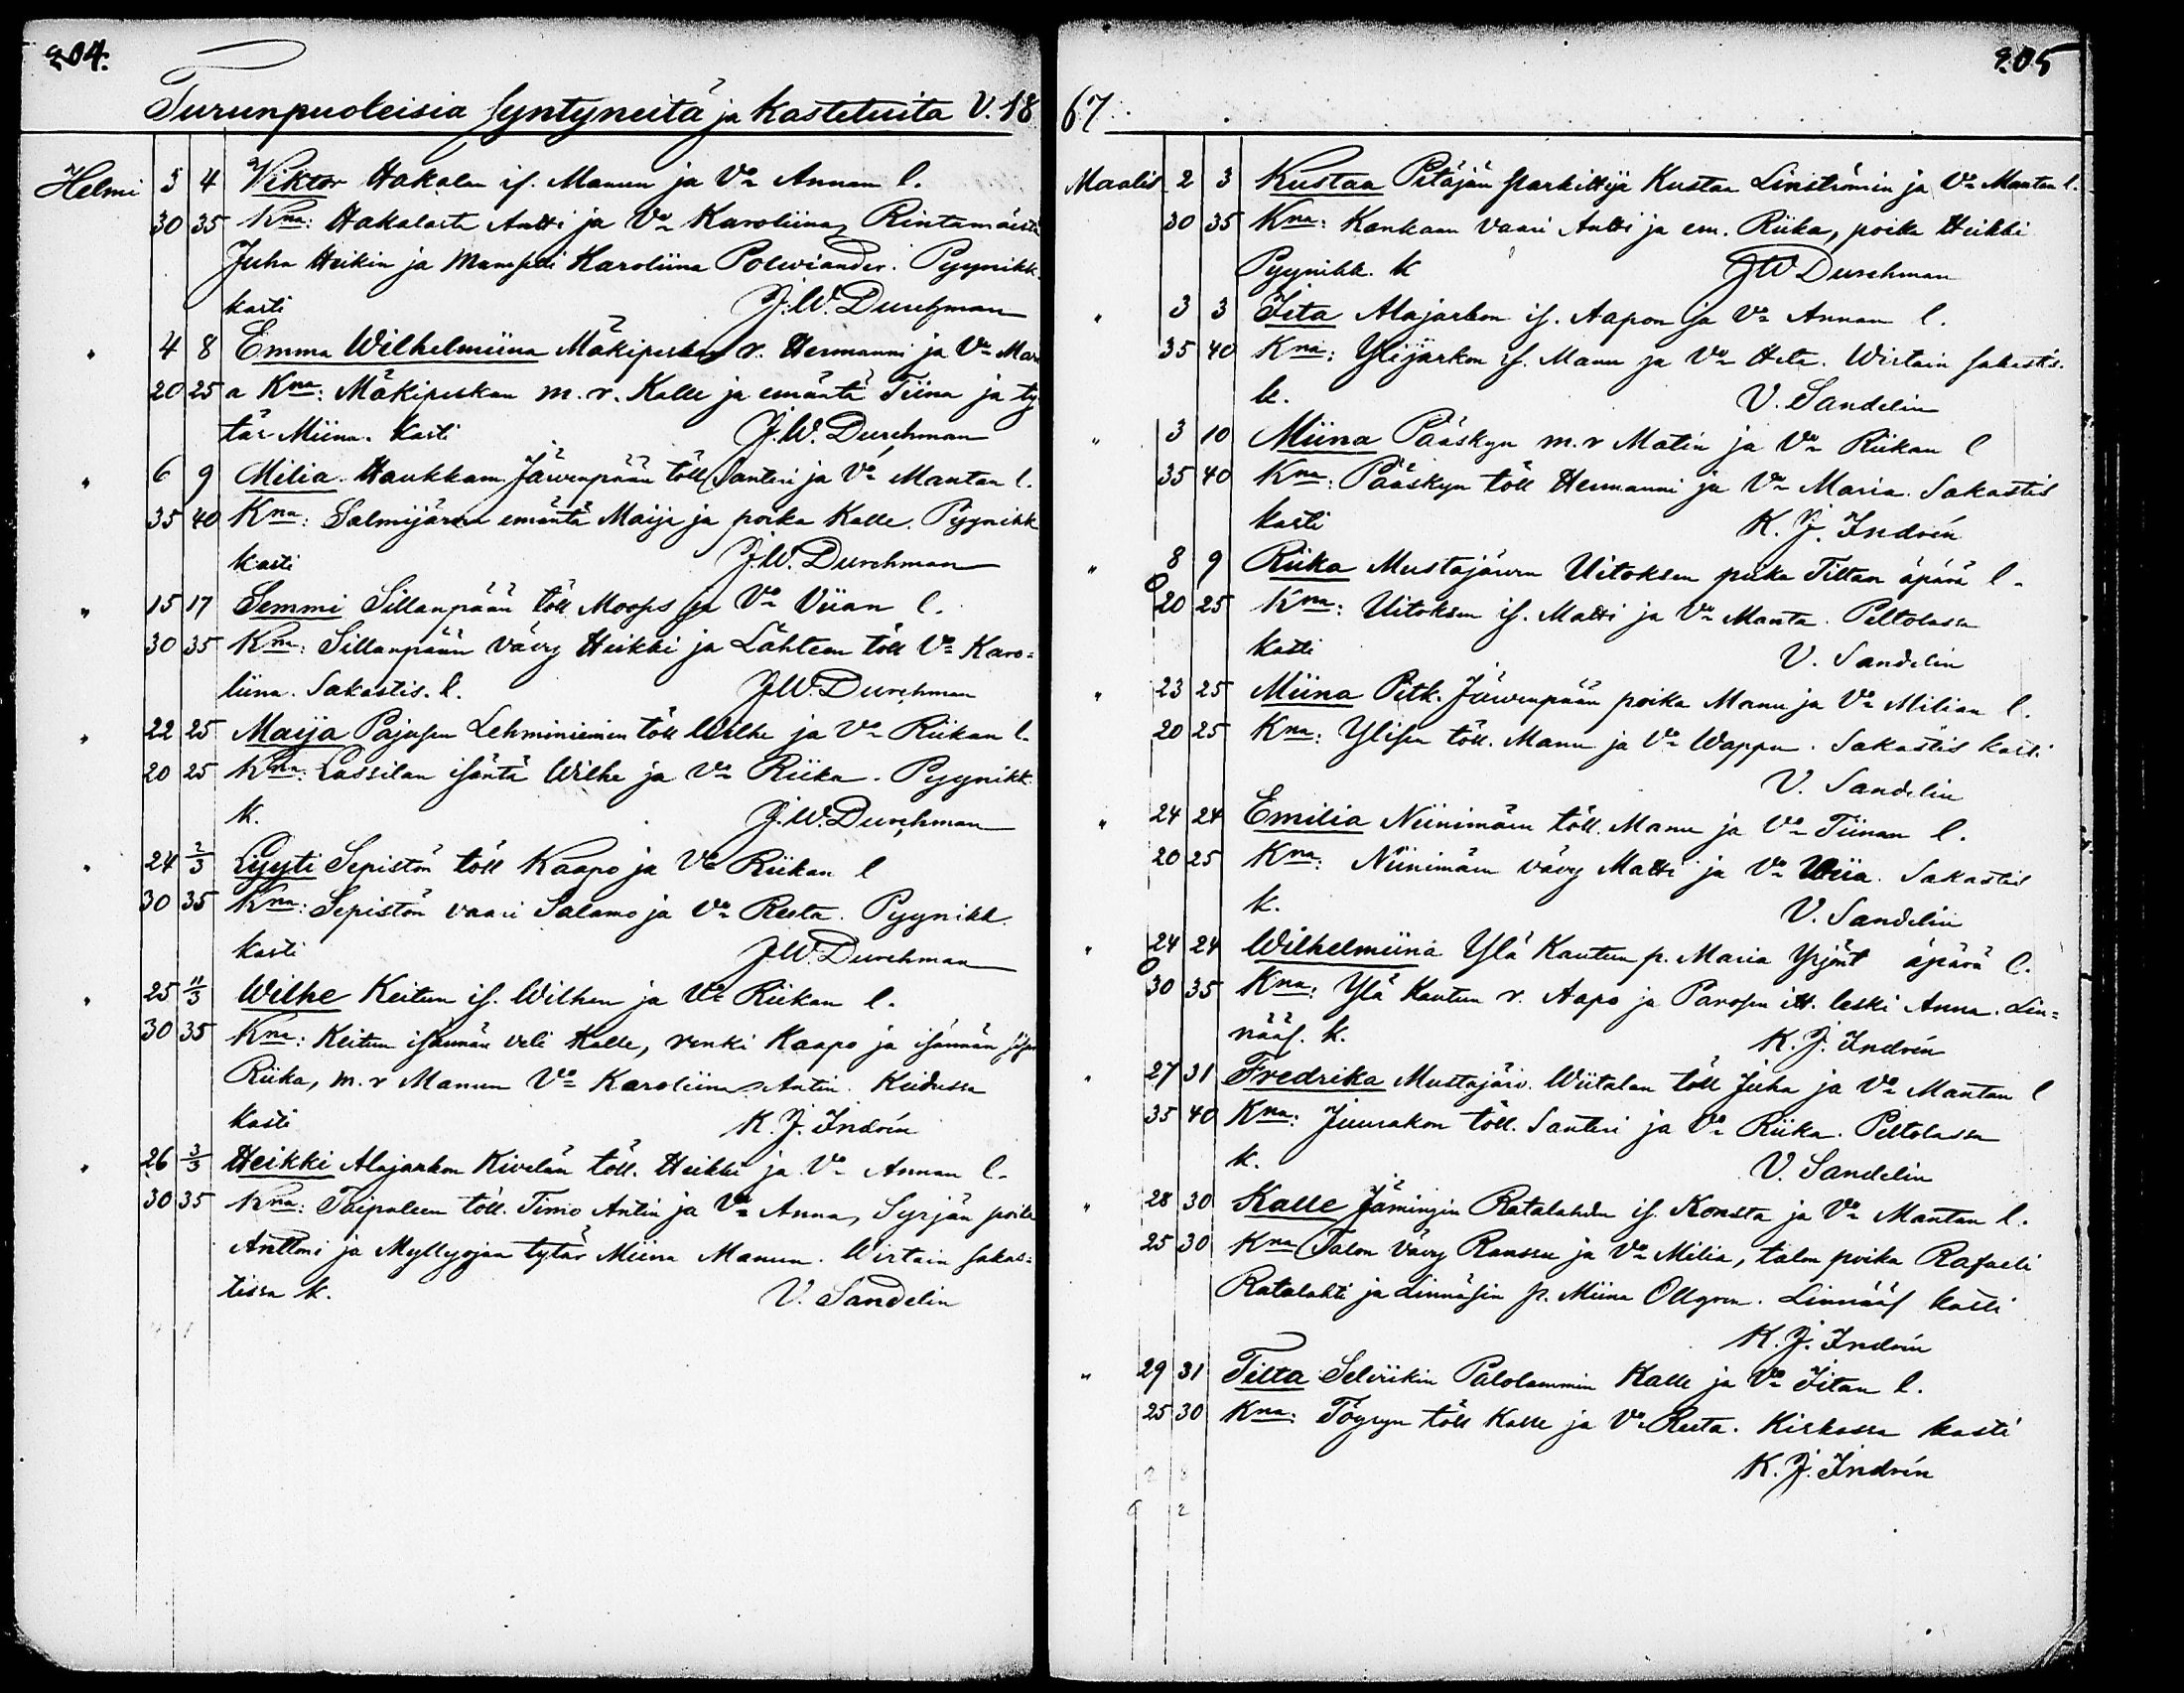 204.
Turunpuoleisia Syntyneitä ja kastetuita V. 18
Helmi 3 4 Viktor Hakalan is. Manun ja Vo Annan l.
30 35 Kna: Hakalasta Antti ja Vo Karoliina, Rintamäestä
Juha Heikin ja Mamselli Karoliina Polviander. Pyynikk.
kasti J.W. Durchman
" 4 8 Emma Wilhelmiina Mäkipeskan r. Hermanni ja Vo Mari
20 25 a Kna: Mäkipeskan m. r. Kalle ja emäntä Tiina ja ty
tär Miina. kasti J.W. Durchman
" 6 9 Milia Haukkam. Jäwenpään töll Santeri ja Vo Mantan l.
35 40 Kna: Salmijärwen emäntä Maija ja poika Kalle. Pyynikk
kasti J.W. Durchman
" 15 17 Semmi Sillanpään töll Moops ja Vo Viian l.
30 35 Kna: Sillanpään vävy Heikki ja Lähteen töll Vo Karo=
liina. Sakastis. k. J.W. Durchman
" 22 25 Maija Pajusen Lehminiemen töll Wilhe ja Vo Riikan l.
20 25 Kna: Lassilan isäntä Wilhe ja Vo Riika. Pyynikk.
k. J.W. Durchman
" 24 2/3 Lyyti Sepistön töll Kaapo ja Vo Riikan l
30 35 Kna: Sepistön vaari Salamo ja Vo Reeta. Pyynikk.
kasti J.W. Durchman
" 25 11/3 Wilhe Keitun is. Wilhun ja Vo Riikan l.
30 35 Kna: Keitun isännän veli Kalle, renki Kaapo ja isännän sisar
Riika, m. r Manun Vo Karoliina Antin. Keidussa
kasti K. J. Indrén
" 26 3/3 Heikki Alajarkon Kivelän töll. Heikki ja Vo Annan l.
30 35 Kna: Taipaleen töll. Timo Antin ja Vo Anna, Syrjän poika
Anttoni ja Myllyojan tytär Miina Manun. Wirtain sakas=
tissa k. V. Sandelin
205
67.
Maalis 2 3 Kustaa Pitäjän parkittija Kustaa Linströmin ja Vo Mantan l.
30 35 Kna: Kankaan vaari Antti ja em. Riika, poika Heikki
Pyynikk. k JW Durchman
" 3 3 Iita Alajarkon is. Aapon ja Vo Annan l.
35 40 Kna: Ylijarkon is. Manu ja Vo Heta. Wirtain sakastis.
k. V. Sandelin
" 3 10 Miina Pääskyn m. r Matin ja Vo Riikan l
35 40 Kna: Pääskyn töll Hermanni ja Vo Maria. Sakastis
kasti K. J. Indrén
" 8 9 Riika Mustajärwen Uitoksen piika Tiltan äpärä l.
20 25 Kna: Uitoksen is. Matti ja Vo Manta. Peltolassa
kasti V. Sandelin
" 23 25 Miina Pitk. Jäwenpään poika Manu ja Vo Milian l.
20 25 Kna: Ylisen töll. Manu ja Vo Wappu. Sakastis kasti
V. Sandelin
" 24 24 Emilia Niinimäen töll. Manu ja Vo Tiinan l.
20 25 Kna: Niinimäen vävy Matti ja Vo Wiia. Sakastis
k. V. Sandelin
" 24 24 Wilhelmiina Ylä Kautun p. Maria Yrjönt äpärä l.
30 35 Kna: Ylä Kautun r. Aapo ja Parosen itt. leski Anna. Lin=
nääs. k. K. J. Indrén
" 27 31 Fredrika Mustajärv. Wiitalan töll Juha ja Vo Mantan l
35 40 Kna: Juurakon töll. Santeri ja Vo Riika. Peltolassa
k. V. Sandelin
" 28 30 Kalle Jämingin Ratalahden is. Konsta ja Vo Mantan l.
25 30 Kna Talon vävy Ranssu ja Vo Milia, talon poika Rafaeli
Ratalahti ja Linnäsin p. Miina Ollgren. Linnääs kasti
K. J. Indrén
" 29 31 Tilta Seliirikin Palolammin Kalle ja Vo Iitan l.
25 30 Kna: Töyryn töll Kalle ja Vo Reeta. Kirkossa kasti
K. J. Indrén